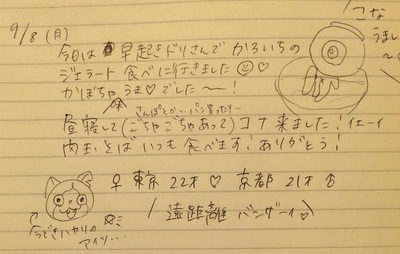 9/8(月)
今日は早起きドリさんでかろいちの
ジェラート食べに行きました♡
かぼちゃうま♡でした〜!
さんぽとか…パン買ったり…
昼寝して(ごちゃごちゃあって)コナ来ました!イェーイ
肉まぜそばいつも食べます!ありがとう!
コナ
うまし
〜
♀東京22才♡京都21才♂
遠距離バンザーイ
↑今どきハヤリの
アイツ…